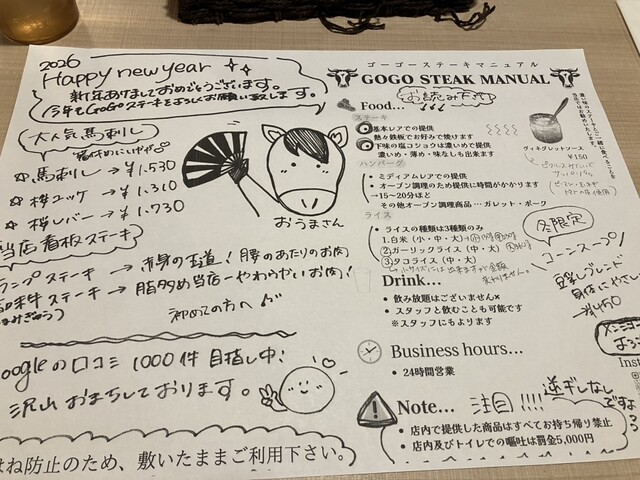 2026
Happy new year
新年あけましておめでとうございます。
今年もGoGoステーキをよろしくお願い致します。
大人気馬刺し
☆馬刺し→¥1.530
☆桜ユッケ→¥1.310
☆桜レバー→¥1.730
おうまさん
当店看板ステーキ
ランプステーキ→赤身の王道!腰のあたりのお肉
ステーキ→脂多め当店一やわらかいお肉!
初めての方へ
oogleの口コミ1000件目指し中!
沢山おまちしております。
はね防止のため、敷いたままご利用下さい。
ゴーゴーステーキマニュアル
GOGO STEAK MANUAL
お読み下さい
Food...
ステーキ
基本レアでの提供
熱々鉄板でお好みで焼けます
下味の塩コショウは濃いめで提供
濃いめ・薄め・味なしも出来ます
ハンバーグ
• ミディアムレアでの提供
• オーブン調理のため提供に時間がかかります
→15~20分ほど
その他オーブン調理商品…ガレット・ポーク
ライス
• ライスの種類は3種類のみ
1.白米(小・中・大)
2.ガーリックライス(中・大)
3.タコライス(中・大)
Drink...
• 飲み放題はございません×
• スタッフと飲むことも可能です
※スタッフにもよります
Business hours...
• 24時間営業
Note...
注目!!!!
逆ギレなし
ですよ
• 店内で提供した商品はすべてお持ち帰り禁止
• 店内及びトイレでの嘔吐は罰金5,000円
ヴィネグレットソース
¥150
冬限定
コーンスープ
豆乳ブレンド
身体にやさしい
¥450
Inst